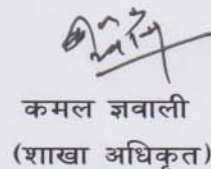 कमल ज्ञवाली
(शाखा अधिकृत)